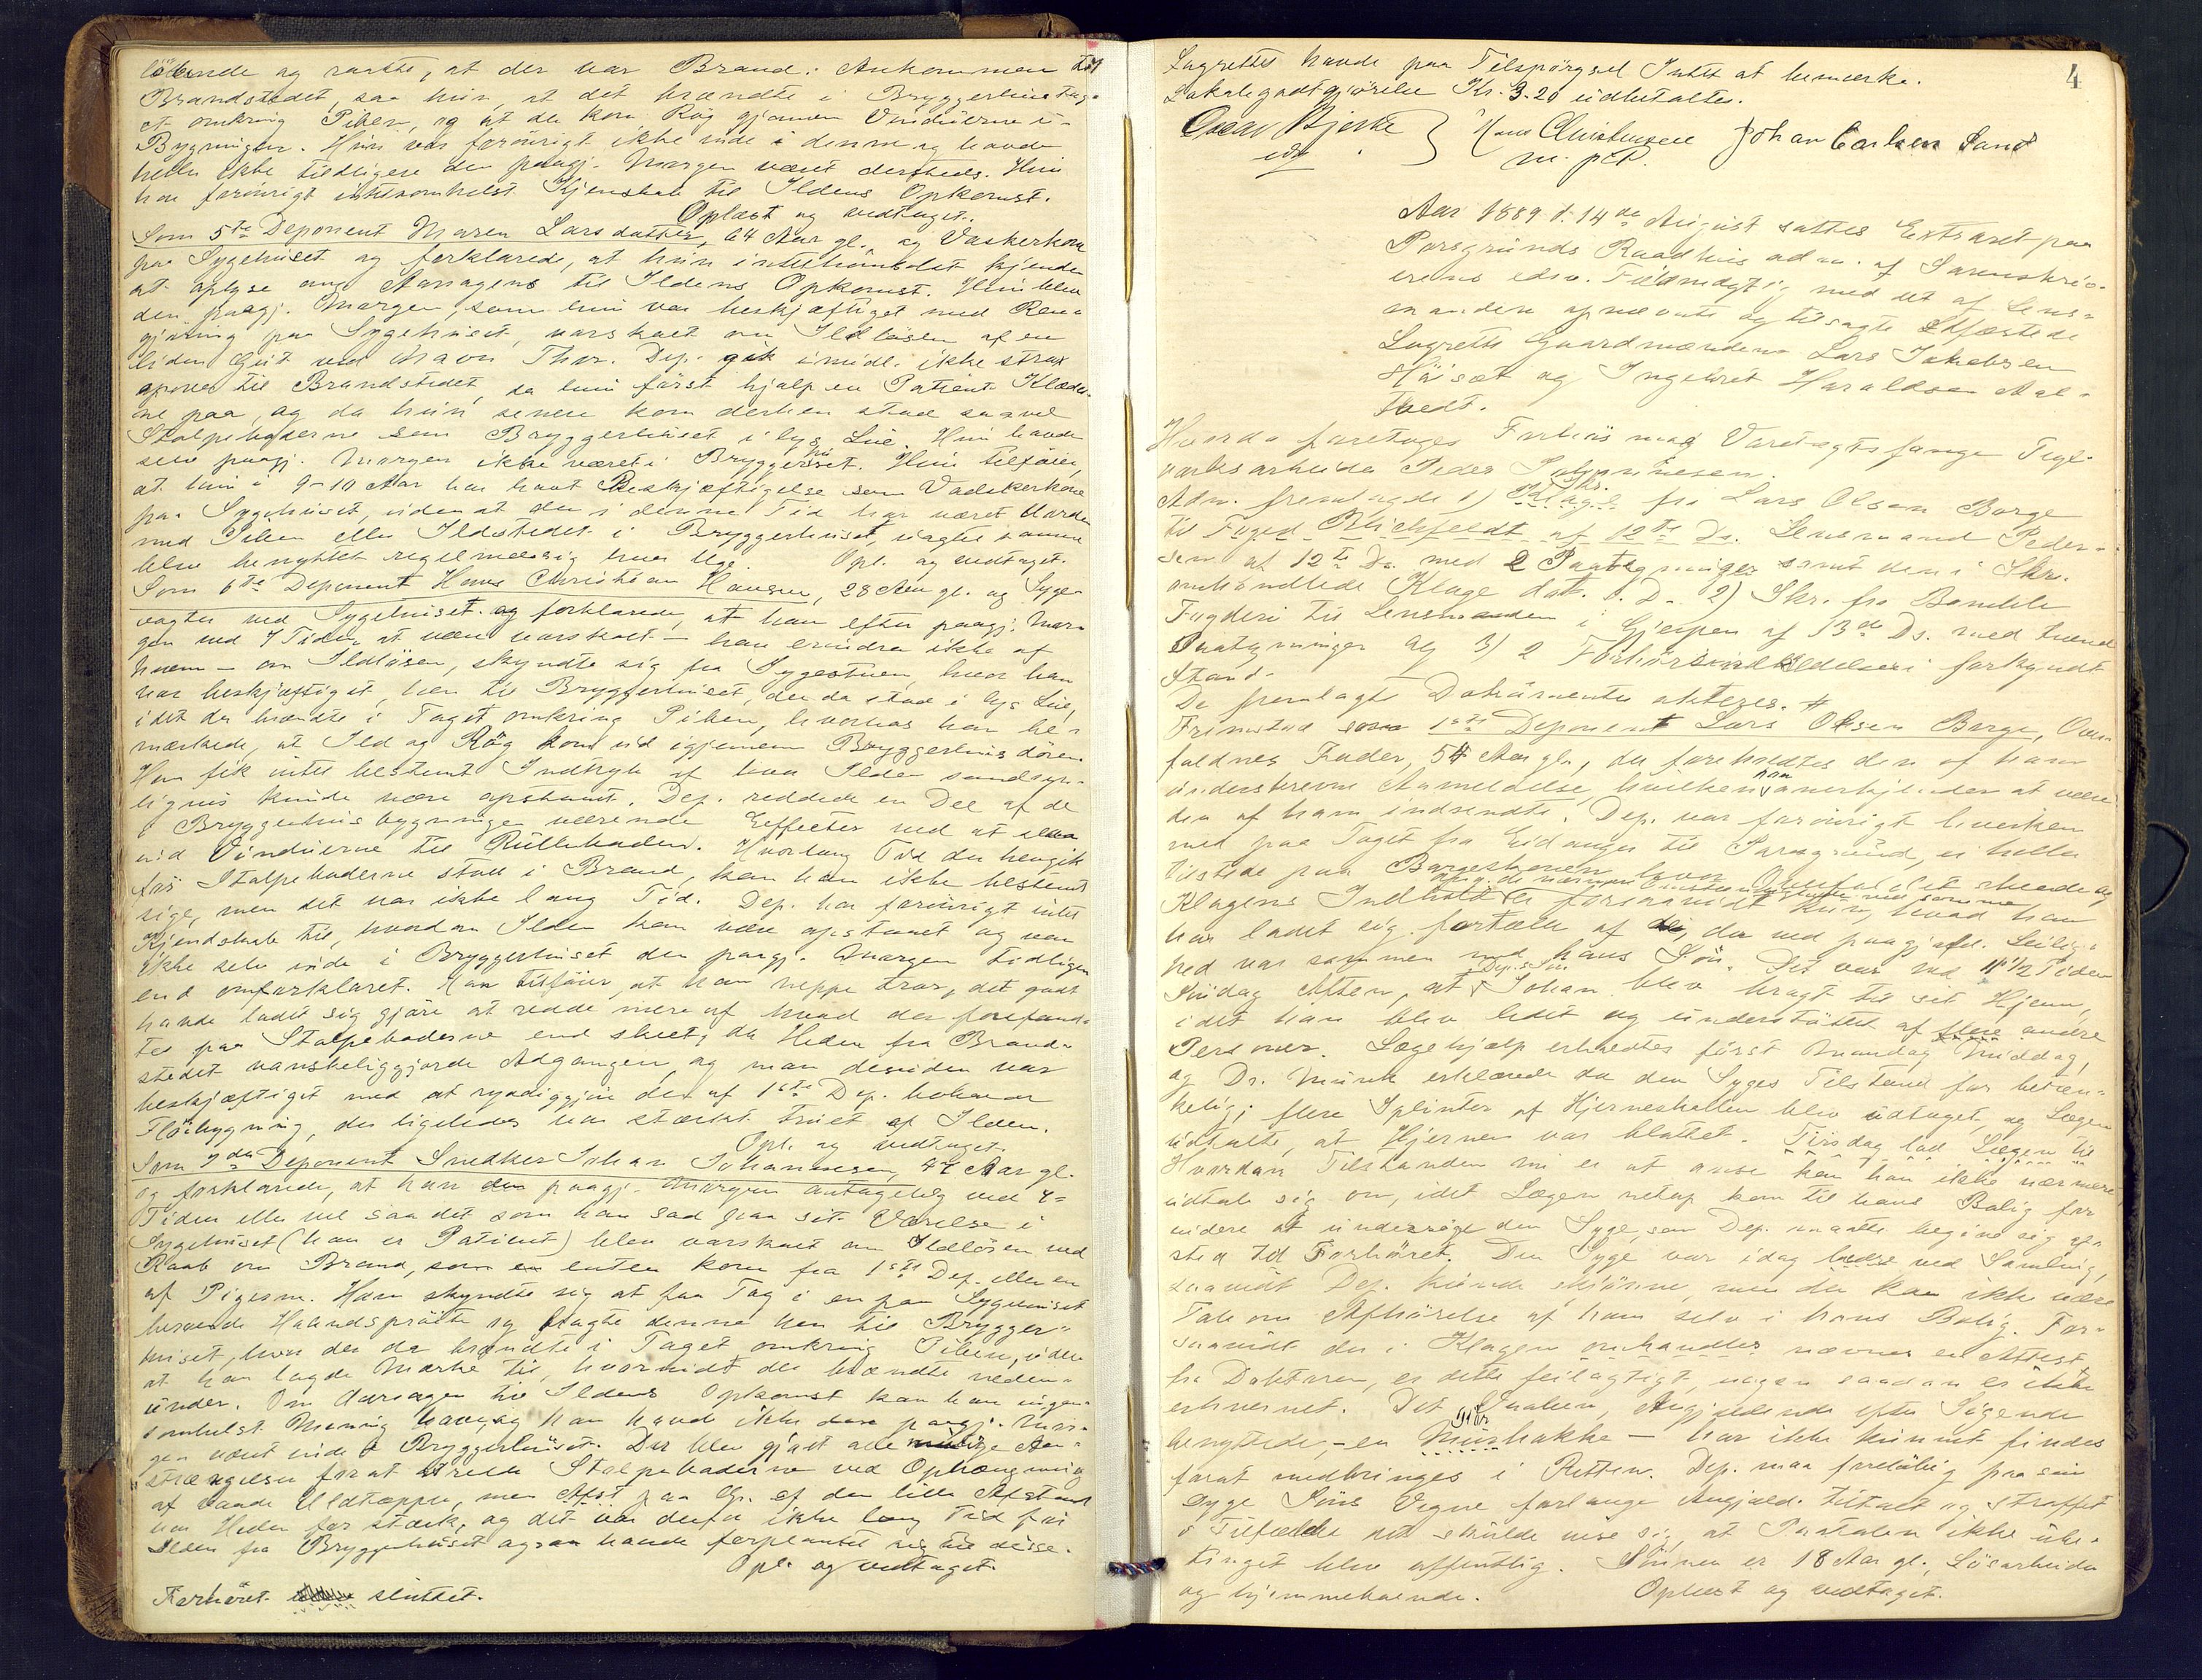 løbende og raabte, at der var Brand. Ankommen til
Brandstedet, saa hun, at det brændte i Bryggerhustag-
et omkring Piben, og at der kom Røg gjennem Vinduerne i
Bygningen. Hun var forøvrigt ikke inde i denne og havde
heller ikke tidligere den paagj. Morgen været dersteds. Hun
har forøvrigt intetsomhelst Kjendskab til Ildens Opkomst.
Oplæst og vedtaget.
Som 5te Deponent Maren Larsdatter, 64 Aar gl. og Vaskerkone
paa Sygehuset og forklarede, at hun intetsomhelst kjender
at oplyse ang. Aarsagens til Ildens Opkomst. Hun blev
den paagj. Morgen, som hun var beskjæftiget med Ren-
gjøring paa Sygehuset, varskoet om Ildløsen af en
liden Gut ved Navn Thor. Dep. gik imidl. ikke strax
opover til Brandstedet, da hun først hjalp en Patient Klæder-
ne paa, og da hun senere kom derhen stod saavel
Stolpeboderne som Bryggerhuset i lys Lue. Hun havde
selv paagj. Morgen ikke været i Bryggerhuset. Hun tilføier,
at hun i 9-10 Aar har havt Beskjæftigelse som Vaskerkone
paa Sygehuset, uden at der i denne Tid har været Uorden
med Piben eller Ildstedet i Bryggerhuset, uagtet samme
blev benyttet regelmæssig hver Uge. Opl. og vedtaget.
Som 6te Deponent Hans Christian Hansen, 28 Aar gl. og Syge-
vogter ved Sygehuset og forklarede, at han efter paagj. Mor-
gen ved 7 Tiden at være varskoet – han erindrer ikke af
hvem – om Ildløsen, skyndte sig fra Sygestuen, hvor han
var beskjæftiget, hen til Bryggerhuset, der da stod i lys Lue,
idet det brændte i Taget omkring Piben, hvorhos han be-
mærkede, at Ild og Røg kom ud igjennem Bryggerhusdøren.
Han fik intet bestemt Indtryk af hvor Ilden sandsyn-
ligvis kunde være opstaaet. Dep. reddede en Del af de
i Bryggerhusbygningen værende Effecter ved at
ud Vinduerne til Rulleboden. Hvorlang Tid der hengik
før Stolpeboderne stod i Brand, kan han ikke bestemt
sige, men det var ikke lang Tid. Dep. har forøvrigt intet
Kjendskab til, hvordan Ilden kan være opstaaet og var
ikke selv inde i Bryggerhuset den paagj. Morgen tidligere
end omforklaret. Han tilføier, at han neppe tror, det godt
havde ladet sig gjøre at redde mere af hvad der forefand-
tes paa Stolpeboderne end skeet, da Heden fra Brand-
stedet vanskeliggjorde Adgangen, og man desuden var
beskjæftiget med at ryddiggjøre det af 1ste Dep. beboede
Fløibygning, der ligeledes var stærkt truet af Ilden.
Opl. og vedtaget.
Som 7de Deponent Snedker Johan Johannesen, 47 Aar gl.
og forklarede, at han den paagj. Morgen antagelig ved 7-
Tiden eller vel saa det som han sad paa sit Værelse i
Sygehuset (han er Patient) blev varskoet om Ildløsen ved
Raab om Brand, som enten kom fra 1ste Dep. eller en
af Pigerne. Han skyndte sig at faa Tag i en paa Sygehuset
beroende Haandsprøite og bragte denne hen til Brygger-
huset, hvor det da brændte i Taget omkring Piben, uden
at han lagde Mærke til, hvorvidt det brændte neden-
under. Om Aarsagen til Ildens Opkomst kan han ingen-
somhelst Mening have, og han havde ikke den paagj. Mor-
gen været inde i Bryggerhuset. Der blev gjort alle mulige An-
strængelser for at redde Stolpeboderne ved Ophængning
af vaade Uldtæpper, men paa Gr. af den lille Afstand
var Heden for stærk, og det var derfor ikke lang Tid før
Ilden fra Bryggerhuset ogsaa havde forplantet sig til disse.
Opl. og vedtaget.
Forhøret sluttet.
4
Lagrettet havde paa Tilspørgsel Intet at bemærke.
Lokalegodtgjørelse Kr. 3.20 udbetaltes.
Oscar Bjerke } Hans Christensen Johan Carlsen Sand
edsv. m. p. P.
Aar 1889 d. 14de August sattes Extraret paa
Porsgrunds Raadhus adm. af Sorenskriv-
erens edsv. Fuldmægtig med det af Lens-
manden opnævnte og tilsagte edfæstede
Lagrette Gaardmændene Lars Jakobsen
Høisæt og Ingebret Haraldsen Aal-
stvedt.
Hvorda foretoges Forhør mod Varetægtsfange Tegl-
værksarbeider Peder Johannesen.
Adm. fremlagde 1) Skr. fra Lars Olsen Borge
til Foged Blichfeldt af 12te Ds. Lensmand Peder-
sen af 12te Ds. med 2 Paategninger samt den i Skr.
omhandlede Klage dat. s. D. 2) Skr. fra Bamble
Fogderi til Lensmanden i Gjerpen af 13de Ds. med tvende
Paategninger og 3) 2 Forhørsindkaldelser i forkyndt
Stand.
De fremlagte Dokumenter akteres.
Fremstod som 1ste Deponent Lars Olsen Borge, Over-
faldnes Fader, 54 Aar gl., der foreholdtes den af ham
underskrevne Anmeldelse, hvilken han anerkjender at være
den af ham indsendte. Dep. var forøvrigt hverken
med paa Toget fra Eidanger til Porsgrund, ei heller
tilstede paa Borgestranden hvor Overfaldet skeede og
Klagens Indhold er forsaavidt kun, hvad han
har ladet sig fortælle af de, der ved paagjæld. Leilig-
hed var sammen med hans Søn. Det var ved 11½ Tiden
Søndag Aften, at Dep.s Søn Johan blev bragt til sit Hjem,
idet han blev ledet og understøttet af flere andre
Personer. Lægehjælp erholdtes først Mandag Middag,
og Dr. Munk erklærede da den Syges Tilstand for betæn-
kelig; flere Splinter af Hjerneskallen blev udtaget, og Lægen
udtalte, at Hjernen var blottet. Tirsdag lod Lægen til
Hvordan Tilstanden nu er at anse kan han ikke nærmere
udtale sig om, idet Lægen netop kom til hans Bolig for
videre at undersøge den Syge, som Dep. maatte begive sig af-
sted til Forhøret. Den Syge var idag bedre ved Samling,
saavidt Dep. kunde skjønne men der kan ikke være
Tale om Afhørelse af ham selv i hans Bolig. For-
saavidt der i Klagen omhandles nævnes en Attest
fra Doktoren, er dette feilagtigt, nogen saadan er ikke
erhvervet. Det Angjældende efter Sigende
benyttede, – en Murhakke – har ikke kunnet findes
forat medbringes i Retten. Dep. maa foreløbig paa sin
syge Søns Vegne forlange Angjæld. tiltalt og straffet
i Tilfælde det skulde vise sig, at Paatalen ikke ube-
tinget blev offentlig. Sønnen er 18 Aar gl., Løsarbeider
og hjemmehørende. Oplæst og vedtaget.